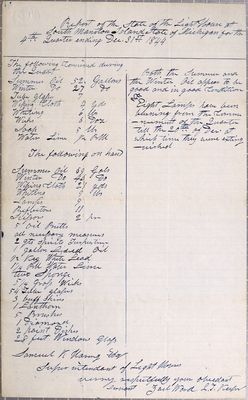 Report of the State of the Light House at
South Manitou Island State of Michigan for the
4th Quarter ending Dec. 31st 1849
The following consumed during
this Quarter
Summer Oil 52 Gallons
Winter Do 27 Do
Tube Glasses
Wiping Cloth yds
Whiting lbs
Wicks Doz
Soap lbs
Water Lime Bbl
The following on hand
Summer Oil Gals
Winter Do Do
Wiping Cloth 21 yds
Whiting 9 lbs
Lamps
Reflectors 11
Scissors 2 pr
Oil Butts
all necessary measures
2 qts Spirits Turpentine
1 Gallon Linseed Oil
Keg White Lead
Bbl Water Lime
Two Sponge
Groce Wicks
54 Tube glasses
3 buff Skins
1 Lanthorn
5 Brushes
1 Diamond
2 paint Brushes
28 feet Window Glass
Both the Summer and
the Winter Oil appear to be
good and in good Condition
Eight Lamps have been
burning from the Comme
-ncement of the Quarter
till the 20th of Dec at
which time they were exting
-uished
Samuel K. Haring Esqr
Superintendent of Light Houses
very respectfully your obedient
Servant Ward L.H. Keeper